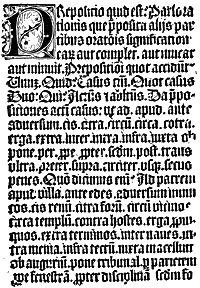 PRepositio quid est: Pars ora
tionis que pposita alijs par
tibus orationis significationem
eaꝝ aut complet, aut mutat
aut minuit. Prepositioni quot accidūt
Unū. Quid: Casus tm̄. Quot casus
Duo: Qui: Actūs ⁊ ablt̄us. Da ppo
sitiones acti casus: vt ad. apud. ante
aduersum. cis. citra. circū. circa. cōtra.
erga. extra. inter. intra. infra. iuxta. ob
pone. per. ꝓpe. ꝓpter. scdm̄. post. trans
vltra. preter. supra. circiter. vsqꝫ. secus
penes. Quo dicimus eni: Ad patrem
apud villā. ante edes. aduersum inimi
cos. cis renū. citra forū. circū vicinos
circa templū. contra hostes. erga ꝓpin
quos. extra terminos. inter naues. in
tra menia. infra tectū. iuxta macellum
ob auguriū. pone tribunal. ꝑ parietem
ꝓpe fenestrā. ꝓpter disciplinā. scdm̄ fo